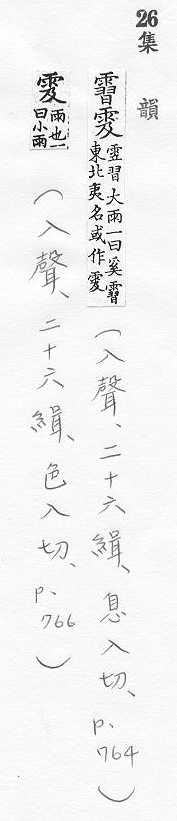 26 集 韻
霫 大雨一曰奚霫
東北夷名或作
(入聲、二十六緝、息入切、p.764)
雨也一
曰小雨
(入聲、二十六緝、色入切、p.766)